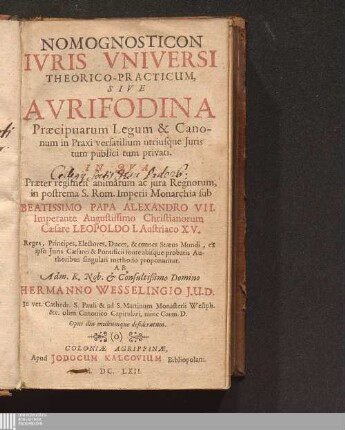 NOMOGNOSTICON
IVRIS VNIVERSI
THEORICO-PRACTICUM,
SIVE
AVRIFODINA
Præcipuarum Legum & Cano-
num in Praxi versatilium utriusque Juris
tum publici tum privati.
IN QVA
Præter regimen animarum ac jura Regnorum,
in postrema S. Rom. Imperii Monarchia sub
BEATISSIMO PAPA ALEXANDRO VII.
Imperante Augustissimo Christianorum
Cæsare LEOPOLDO I. Austriaco XV.
Reges, Principes, Electores, Duces, & omnes Status Mundi, ex
ipso Juris Cæsarei & Pontificii fontibusque probatis Au-
thoribus singulari methodo proponuntur.
AB
Adm. R. Nob. & Consultissimo Domino
HERMANNO WESSELINGIO J.U.D.
In vet. Cathedr. S. Pauli & ad S. Martinum Monasterii Westph.
&c. olim Canonico Capitulari, nunc Cæsm. D.
Opus diu multumque desideratum.
COLONIÆ AGRIPPINÆ,
Apud JODOCUM KALCOVIUM Bibliopolam.
M. DC. LXII.